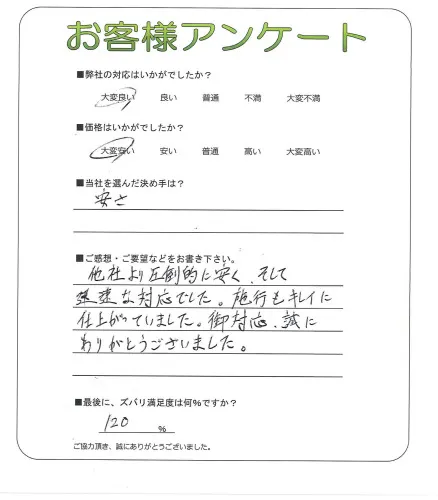 お客様アンケート
■弊社の対応はいかがでしたか？
大変良い 良い 普通 不満 大変不満
■価格はいかがでしたか？
大変安い 安い 普通 高い 大変高い
■当社を選んだ決め手は？
安さ
■ご感想・ご要望などをお書き下さい。
他社より圧倒的に安く、そして
迅速な対応でした。施行もキレイに
仕上がっていました。御対応、誠に
ありがとうございました。
■最後に、ズバリ満足度は何％ですか？
120 ％
ご協力頂き、誠にありがとうございました。